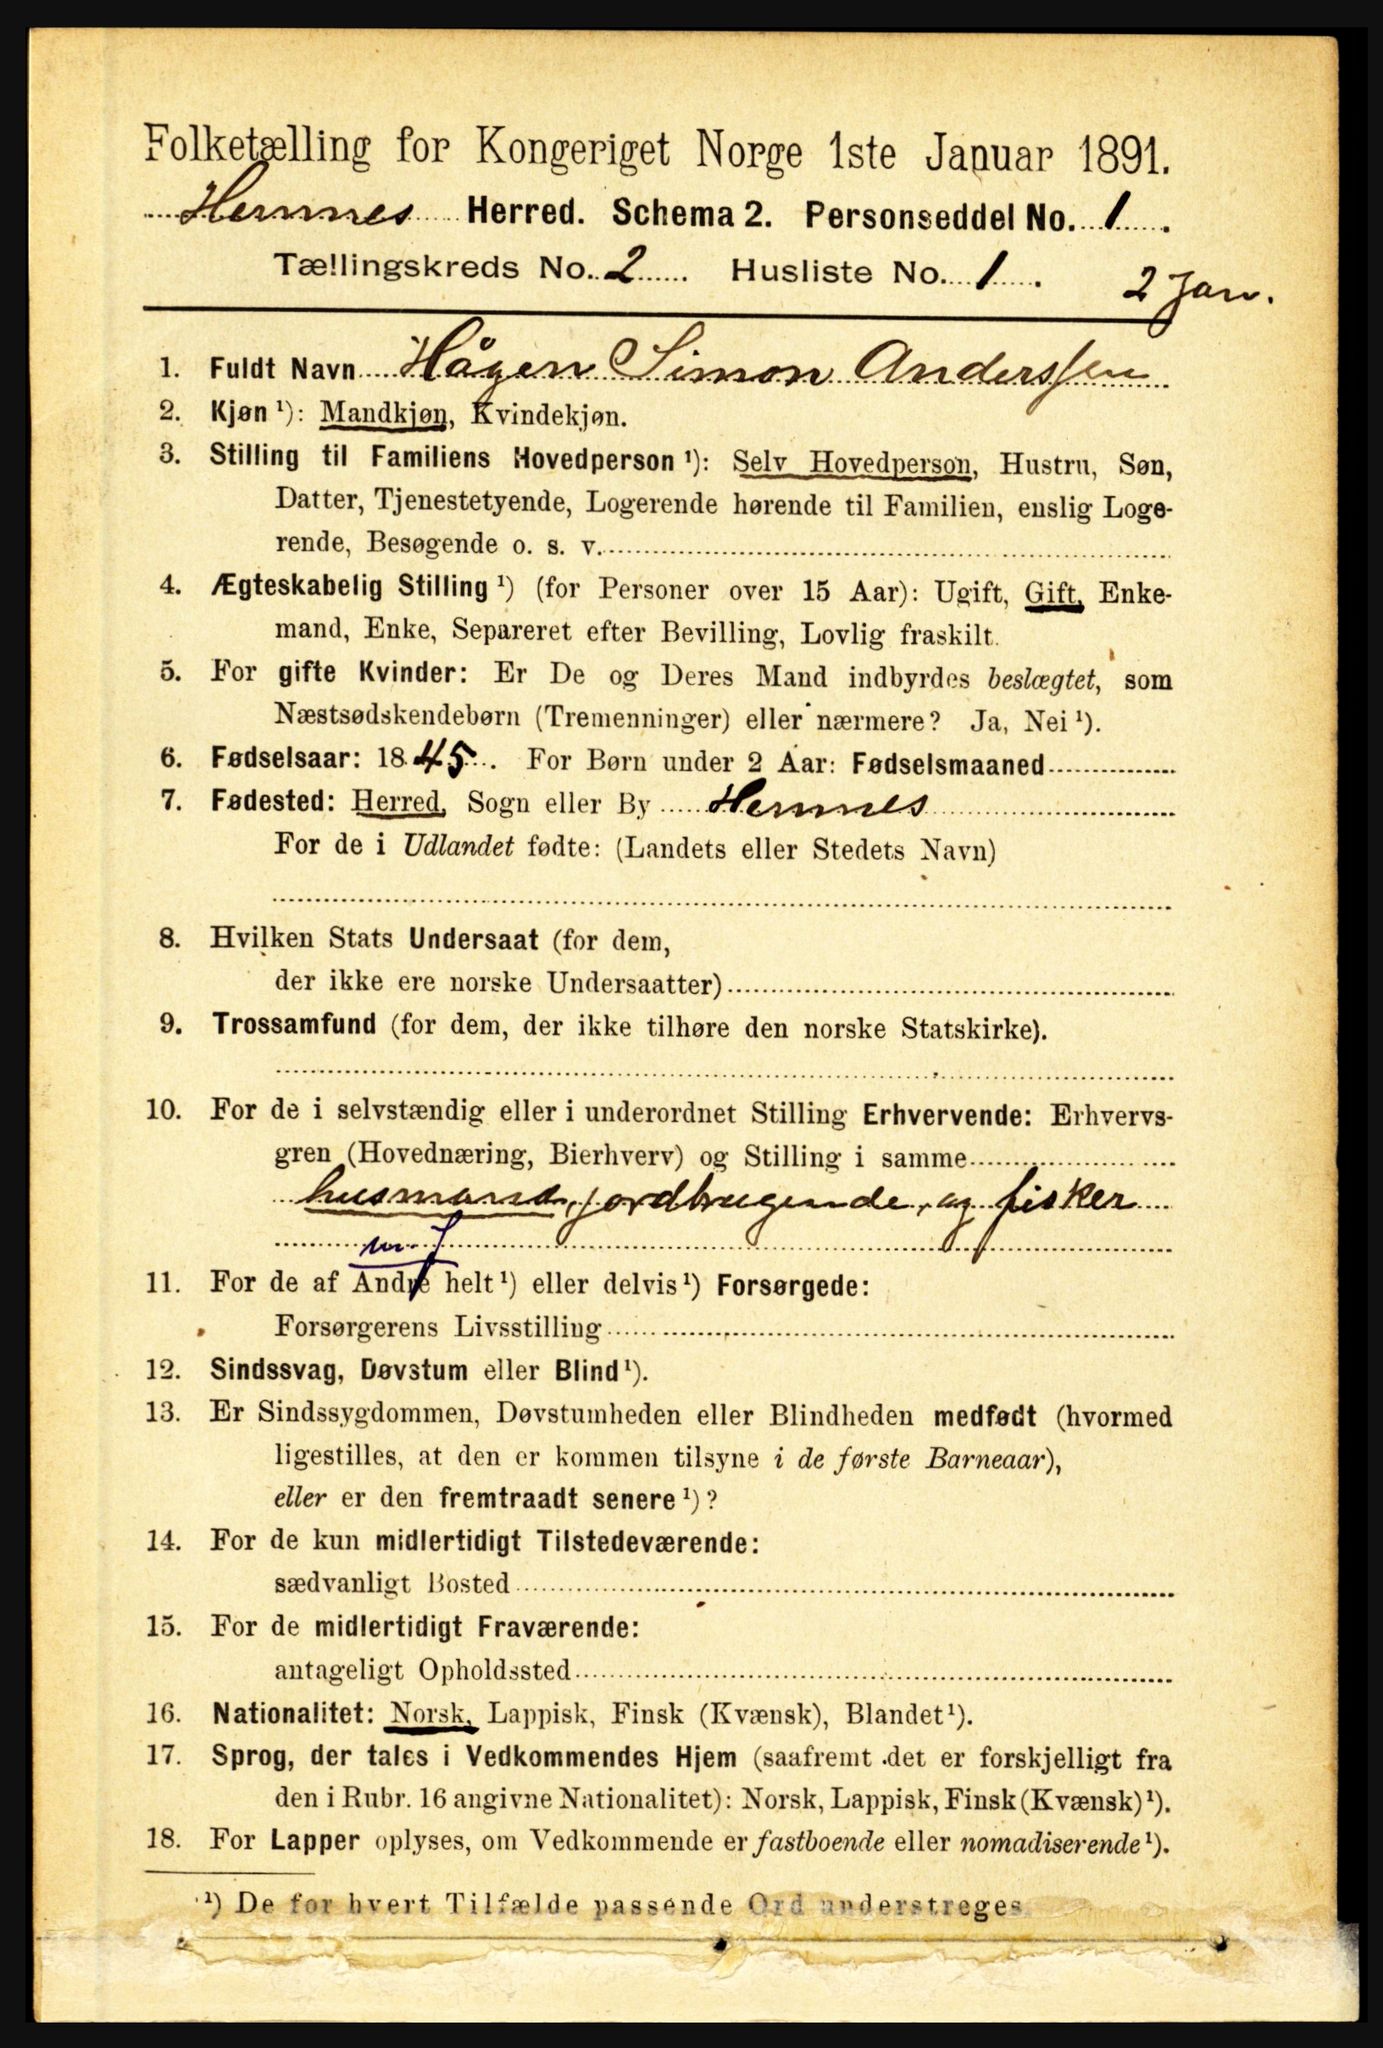 Folketælling for Kongeriget Norge 1ste Januar 1891.
Hemnes Herred. Schema 2. Personseddel No. 1.
Tællingskreds No. 2 Husliste No. 1.
2 Jan.
1. Fuldt Navn Hågen Simon Anderssen
2. Kjøn ¹): Mandkjøn, Kvindekjøn.
3. Stilling til Familiens Hovedperson ¹): Selv Hovedperson, Hustru, Søn,
Datter, Tjenestetyende, Logerende hørende til Familien, enslig Loge-
rende, Besøgende o. s. v.
4. Ægteskabelig Stilling ¹) (for Personer over 15 Aar): Ugift, Gift, Enke-
mand, Enke, Separeret efter Bevilling, Lovlig fraskilt.
5. For gifte Kvinder: Er De og Deres Mand indbyrdes beslægtet, som
Næstsødskendebørn (Tremenninger) eller nærmere? Ja, Nei ¹).
6. Fødselsaar: 1845. For Børn under 2 Aar: Fødselsmaaned
7. Fødested: Herred, Sogn eller By Hemnes
For de i Udlandet fødte: (Landets eller Stedets Navn)
8. Hvilken Stats Undersaat (for dem,
der ikke ere norske Undersaatter)
9. Trossamfund (for dem, der ikke tilhøre den norske Statskirke).
10. For de i selvstændig eller i underordnet Stilling Erhvervende: Erhvervs-
gren (Hovednæring, Bierhverv) og Stilling i samme
husmand, jordbrugende, og fisker
m. J
11. For de af Andre helt ¹) eller delvis ¹) Forsørgede:
Forsørgerens Livsstilling
12. Sindssvag, Døvstum eller Blind ¹).
13. Er Sindssygdommen, Døvstumheden eller Blindheden medfødt (hvormed
ligestilles, at den er kommen tilsyne i de første Barneaar),
eller er den fremtraadt senere ¹)?
14. For de kun midlertidigt Tilstedeværende:
sædvanligt Bosted
15. For de midlertidigt Fraværende:
antageligt Opholdssted
16. Nationalitet: Norsk, Lappisk, Finsk (Kvænsk), Blandet ¹).
17. Sprog, der tales i Vedkommendes Hjem (saafremt det er forskjelligt fra
den i Rubr. 16 angivne Nationalitet): Norsk, Lappisk, Finsk (Kvænsk) ¹).
18. For Lapper oplyses, om Vedkommende er fastboende eller nomadiserende ¹).
¹) De for hvert Tilfælde passende Ord understreges.